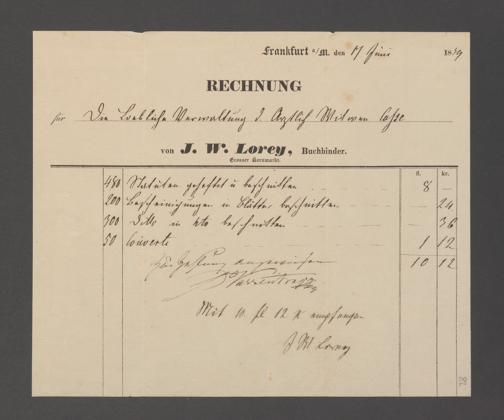 Frankfurt a/M. den 17 Juni 1859
RECHNUNG
für Die Loebliche Verwaltung d. Arztlich Witwen Casse
von J. W. Lorey, Buchbinder.
Grosser Kornmarkt.
fl. kr.
480 Statuten geheftet u beschnitten 8 —
200 Bescheinigungen in Blätter beschnitten — 24
300 Do in 4to beschnitten — 36
50 Couverts 1 12
Zur Zahlung angewiesen 10 12
Mit 10 fl 12 x empfangen
J W Lorey